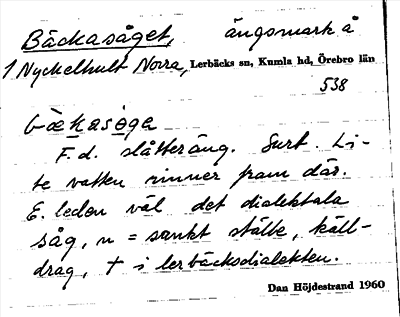 Bäckasåget, ängsmark å
1 Nyckelhult Norra, Lerbäcks sn, Kumla hd, Örebro län
538
bækasøga
F.d. slåtteräng. Surt. Li-
te vatten rinner fram där.
E. leden väl det dialektala
såg, n = sankt ställe, käll-
drag, † i lerbäcksdialekten.
Dan Höjdestrand 1960